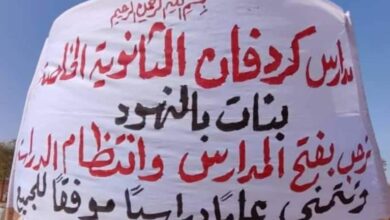 بسم الله الرحمن الرحيم
مدارس كردفان الثانوية الخاصة
بنات بالنهود
ترحب بفتح المدارس وانتظام الدراسة
وتتمنى عاماً دراسياً موفقاً للجميع